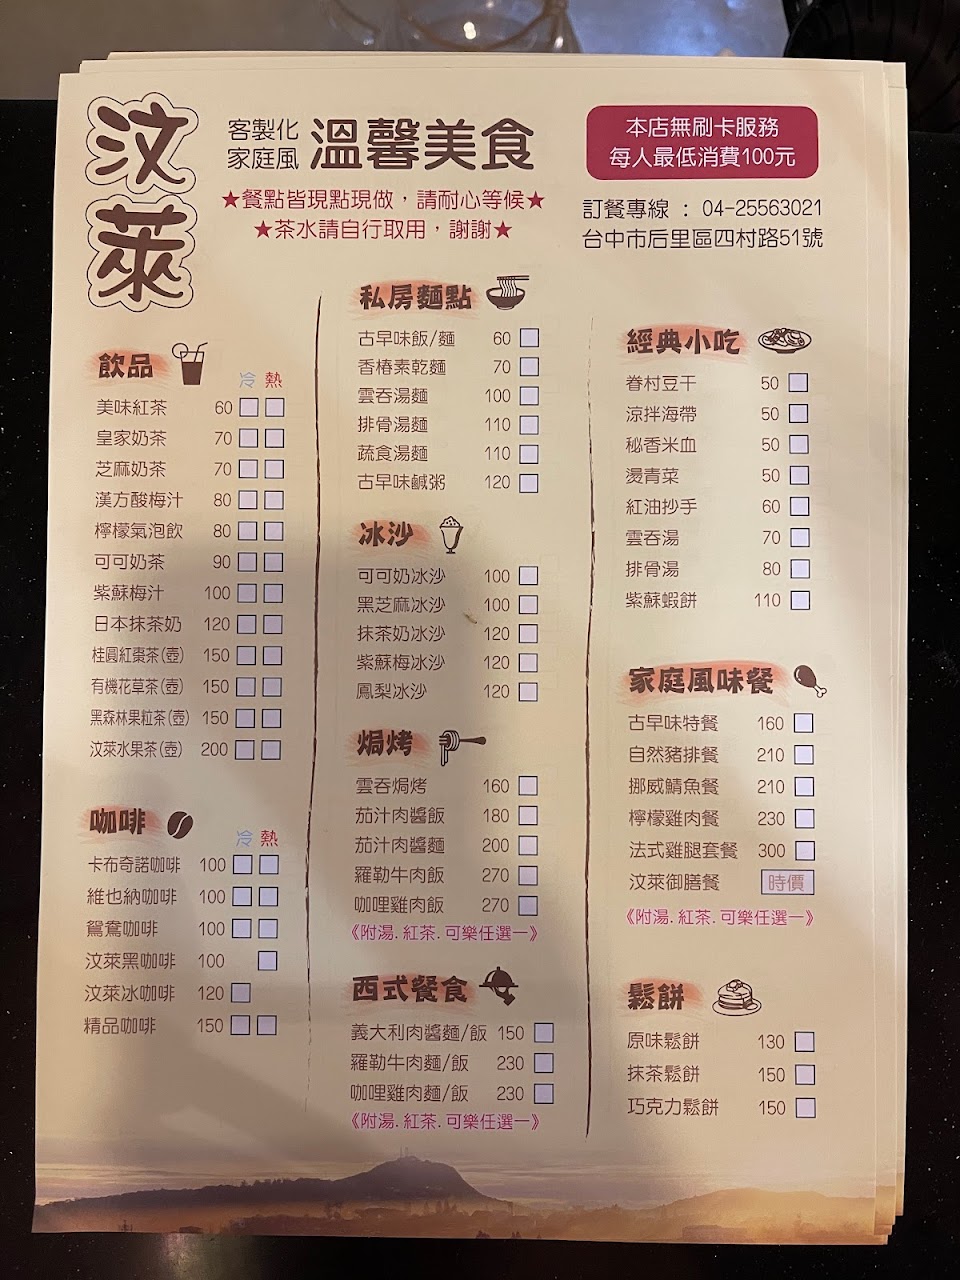 汶萊
客製化
家庭風
溫馨美食
★餐點皆現點現做，請耐心等候★
★茶水請自行取用，謝謝★
本店無刷卡服務
每人最低消費100元
訂餐專線 : 04-25563021
台中市后里區四村路51號
飲品
冷 熱
美味紅茶 60
皇家奶茶 70
芝麻奶茶 70
漢方酸梅汁 80
檸檬氣泡飲 80
可可奶茶 90
紫蘇梅汁 100
日本抹茶奶 120
桂圓紅棗茶(壺) 150
有機花草茶(壺) 150
黑森林果粒茶(壺) 150
汶萊水果茶(壺) 200
咖啡
冷 熱
卡布奇諾咖啡 100
維也納咖啡 100
鴛鴦咖啡 100
汶萊黑咖啡 100
汶萊冰咖啡 120
精品咖啡 150
私房麵點
古早味飯/麵 60
香椿素乾麵 70
雲吞湯麵 100
排骨湯麵 110
蔬食湯麵 110
古早味鹹粥 120
冰沙
可可奶冰沙 100
黑芝麻冰沙 100
抹茶奶冰沙 120
紫蘇梅冰沙 120
鳳梨冰沙 120
焗烤
雲吞焗烤 160
茄汁肉醬飯 180
茄汁肉醬麵 200
羅勒牛肉飯 270
咖哩雞肉飯 270
《附湯.紅茶.可樂任選一》
西式餐食
義大利肉醬麵/飯 150
羅勒牛肉麵/飯 230
咖哩雞肉麵/飯 230
《附湯.紅茶.可樂任選一》
經典小吃
眷村豆干 50
涼拌海帶 50
秘香米血 50
燙青菜 50
紅油抄手 60
雲吞湯 70
排骨湯 80
紫蘇蝦餅 110
家庭風味餐
古早味特餐 160
自然豬排餐 210
挪威鯖魚餐 210
檸檬雞肉餐 230
法式雞腿套餐 300
汶萊御膳餐 時價
《附湯.紅茶.可樂任選一》
鬆餅
原味鬆餅 130
抹茶鬆餅 150
巧克力鬆餅 150